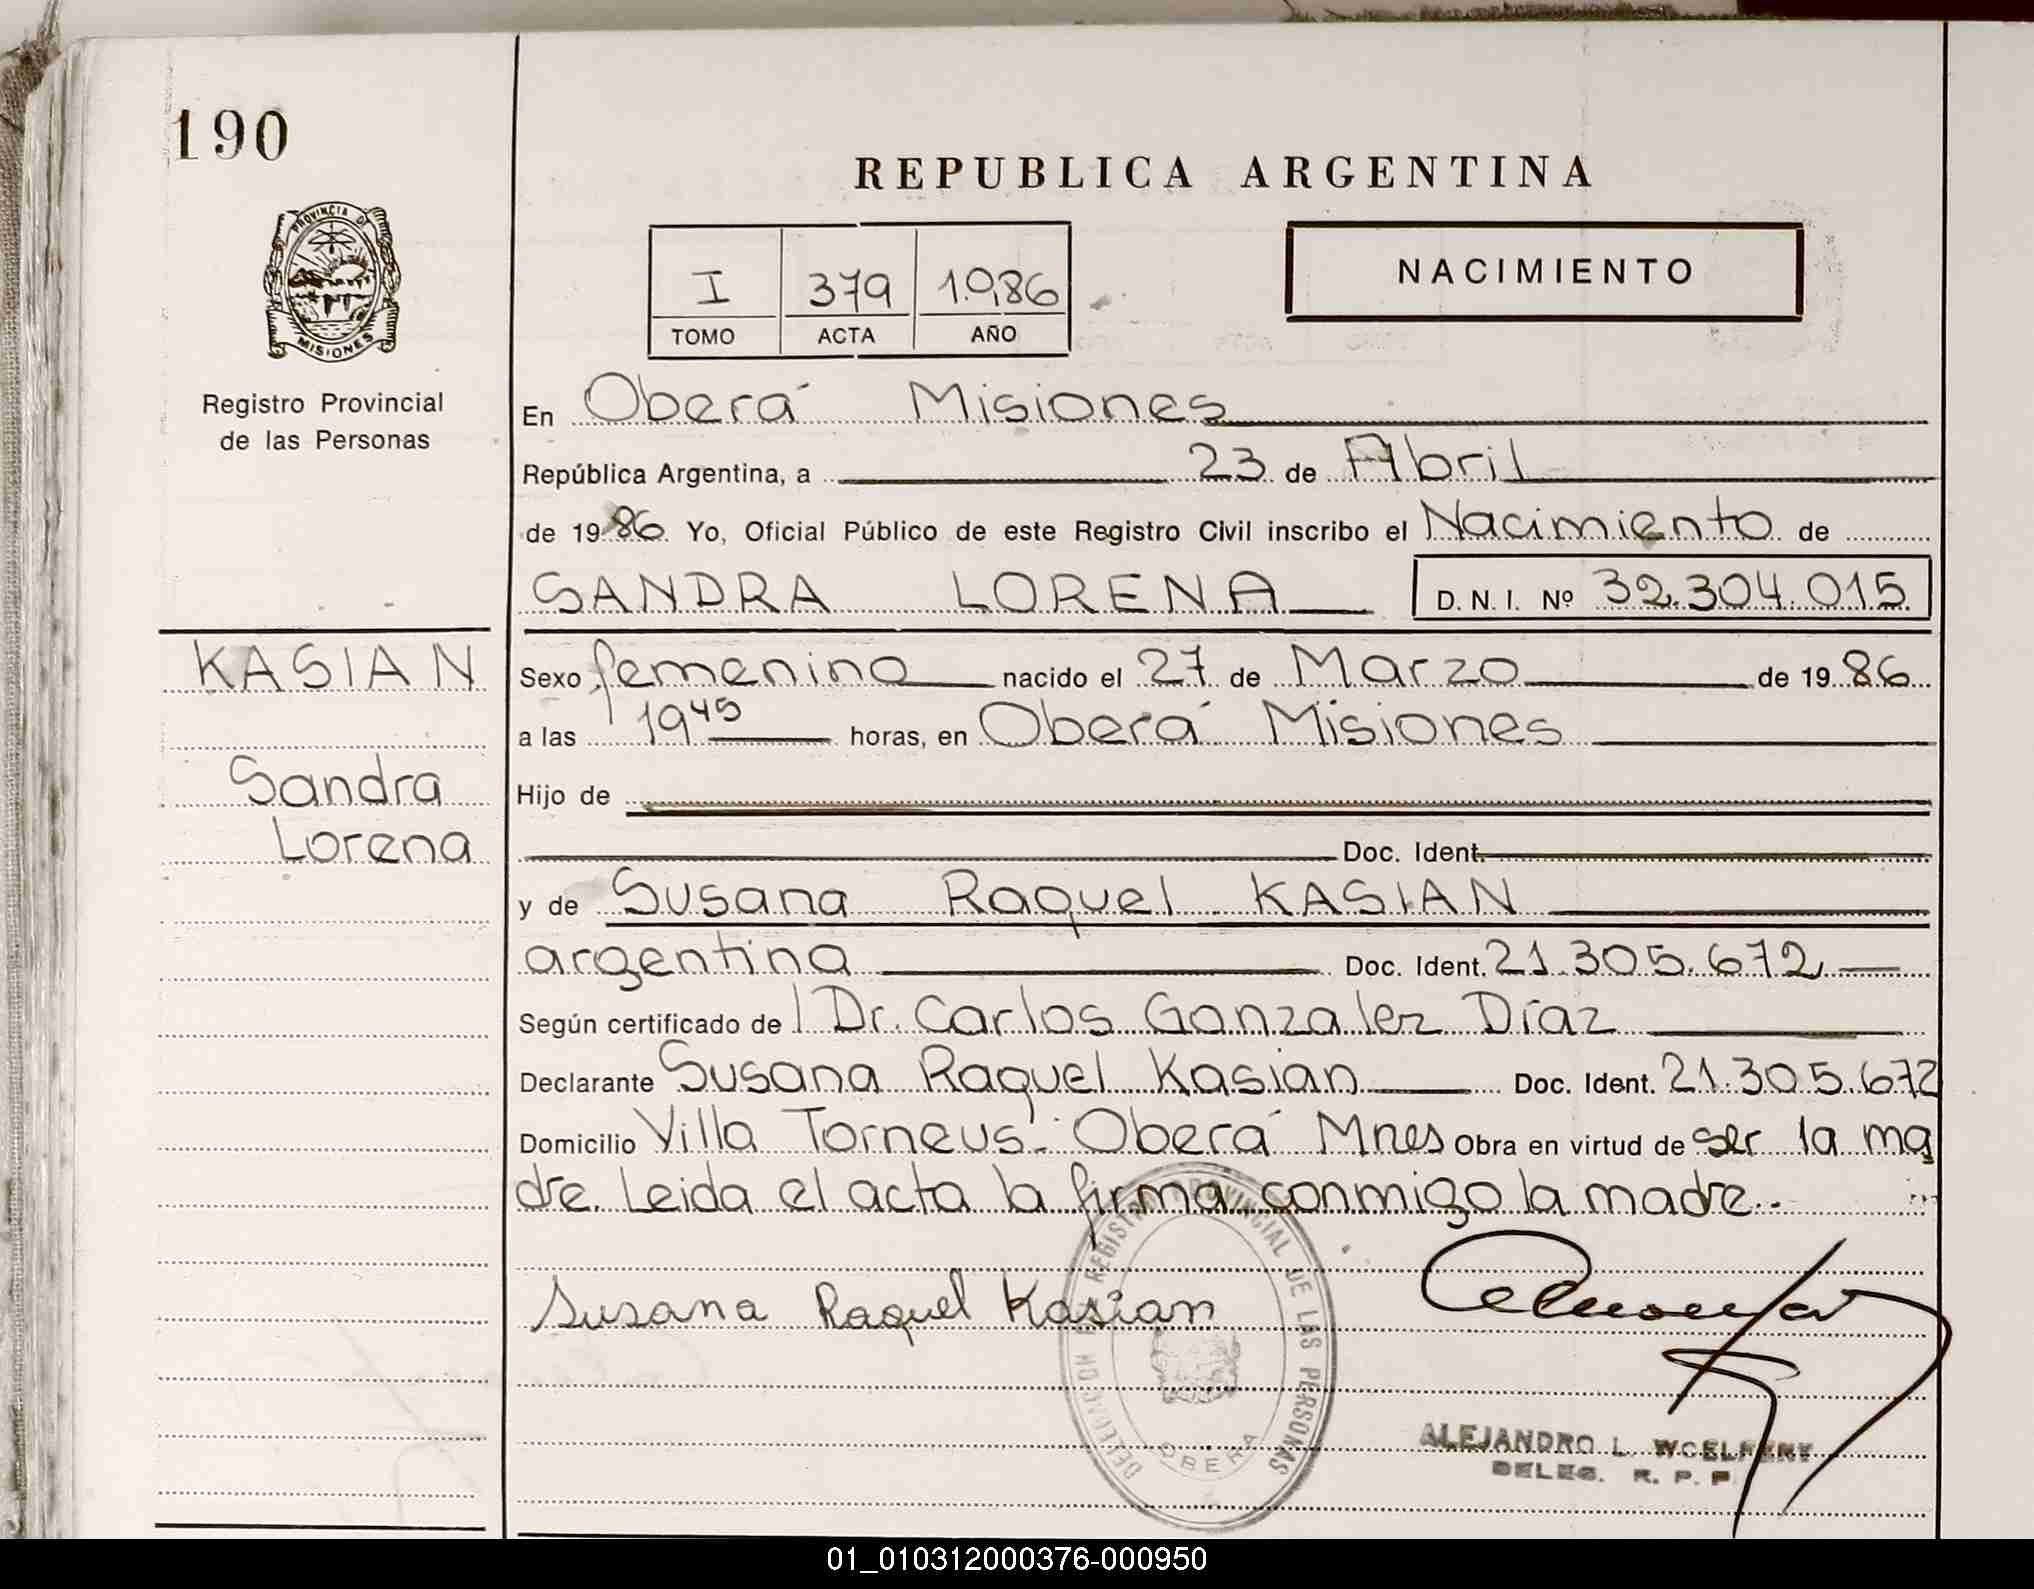 190
REPUBLICA ARGENTINA
PROVINCIA DE
MISIONES
Registro Provincial
de las Personas
I 379 1.986
TOMO ACTA AÑO
NACIMIENTO
En Oberá Misiones
República Argentina, a 23 de Abril
de 1986 Yo, Oficial Público de este Registro Civil inscribo el Nacimiento de
SANDRA LORENA D. N. I. Nº 32.304.015
KASIAN
Sandra
Lorena
Sexo femenino nacido el 27 de Marzo de 1986
a las 19 45 horas, en Oberá Misiones
Hijo de
Doc. Ident.
y de Susana Raquel KASIAN
argentina Doc. Ident. 21.305.672
Según certificado de Dr. Carlos Gonzalez Díaz
Declarante Susana Raquel Kasian Doc. Ident. 21.305.672
Domicilio Villa Torneus - Oberá Mnes Obra en virtud de ser la ma
dre. Leida el acta la firma conmigo la madre.-
Susana Raquel Kasian
REGISTRO PROVINCIAL DE LAS PERSONAS
OBERA
ALEJANDRO L.
DELEG. R. P. P.
01_010312000376-000950